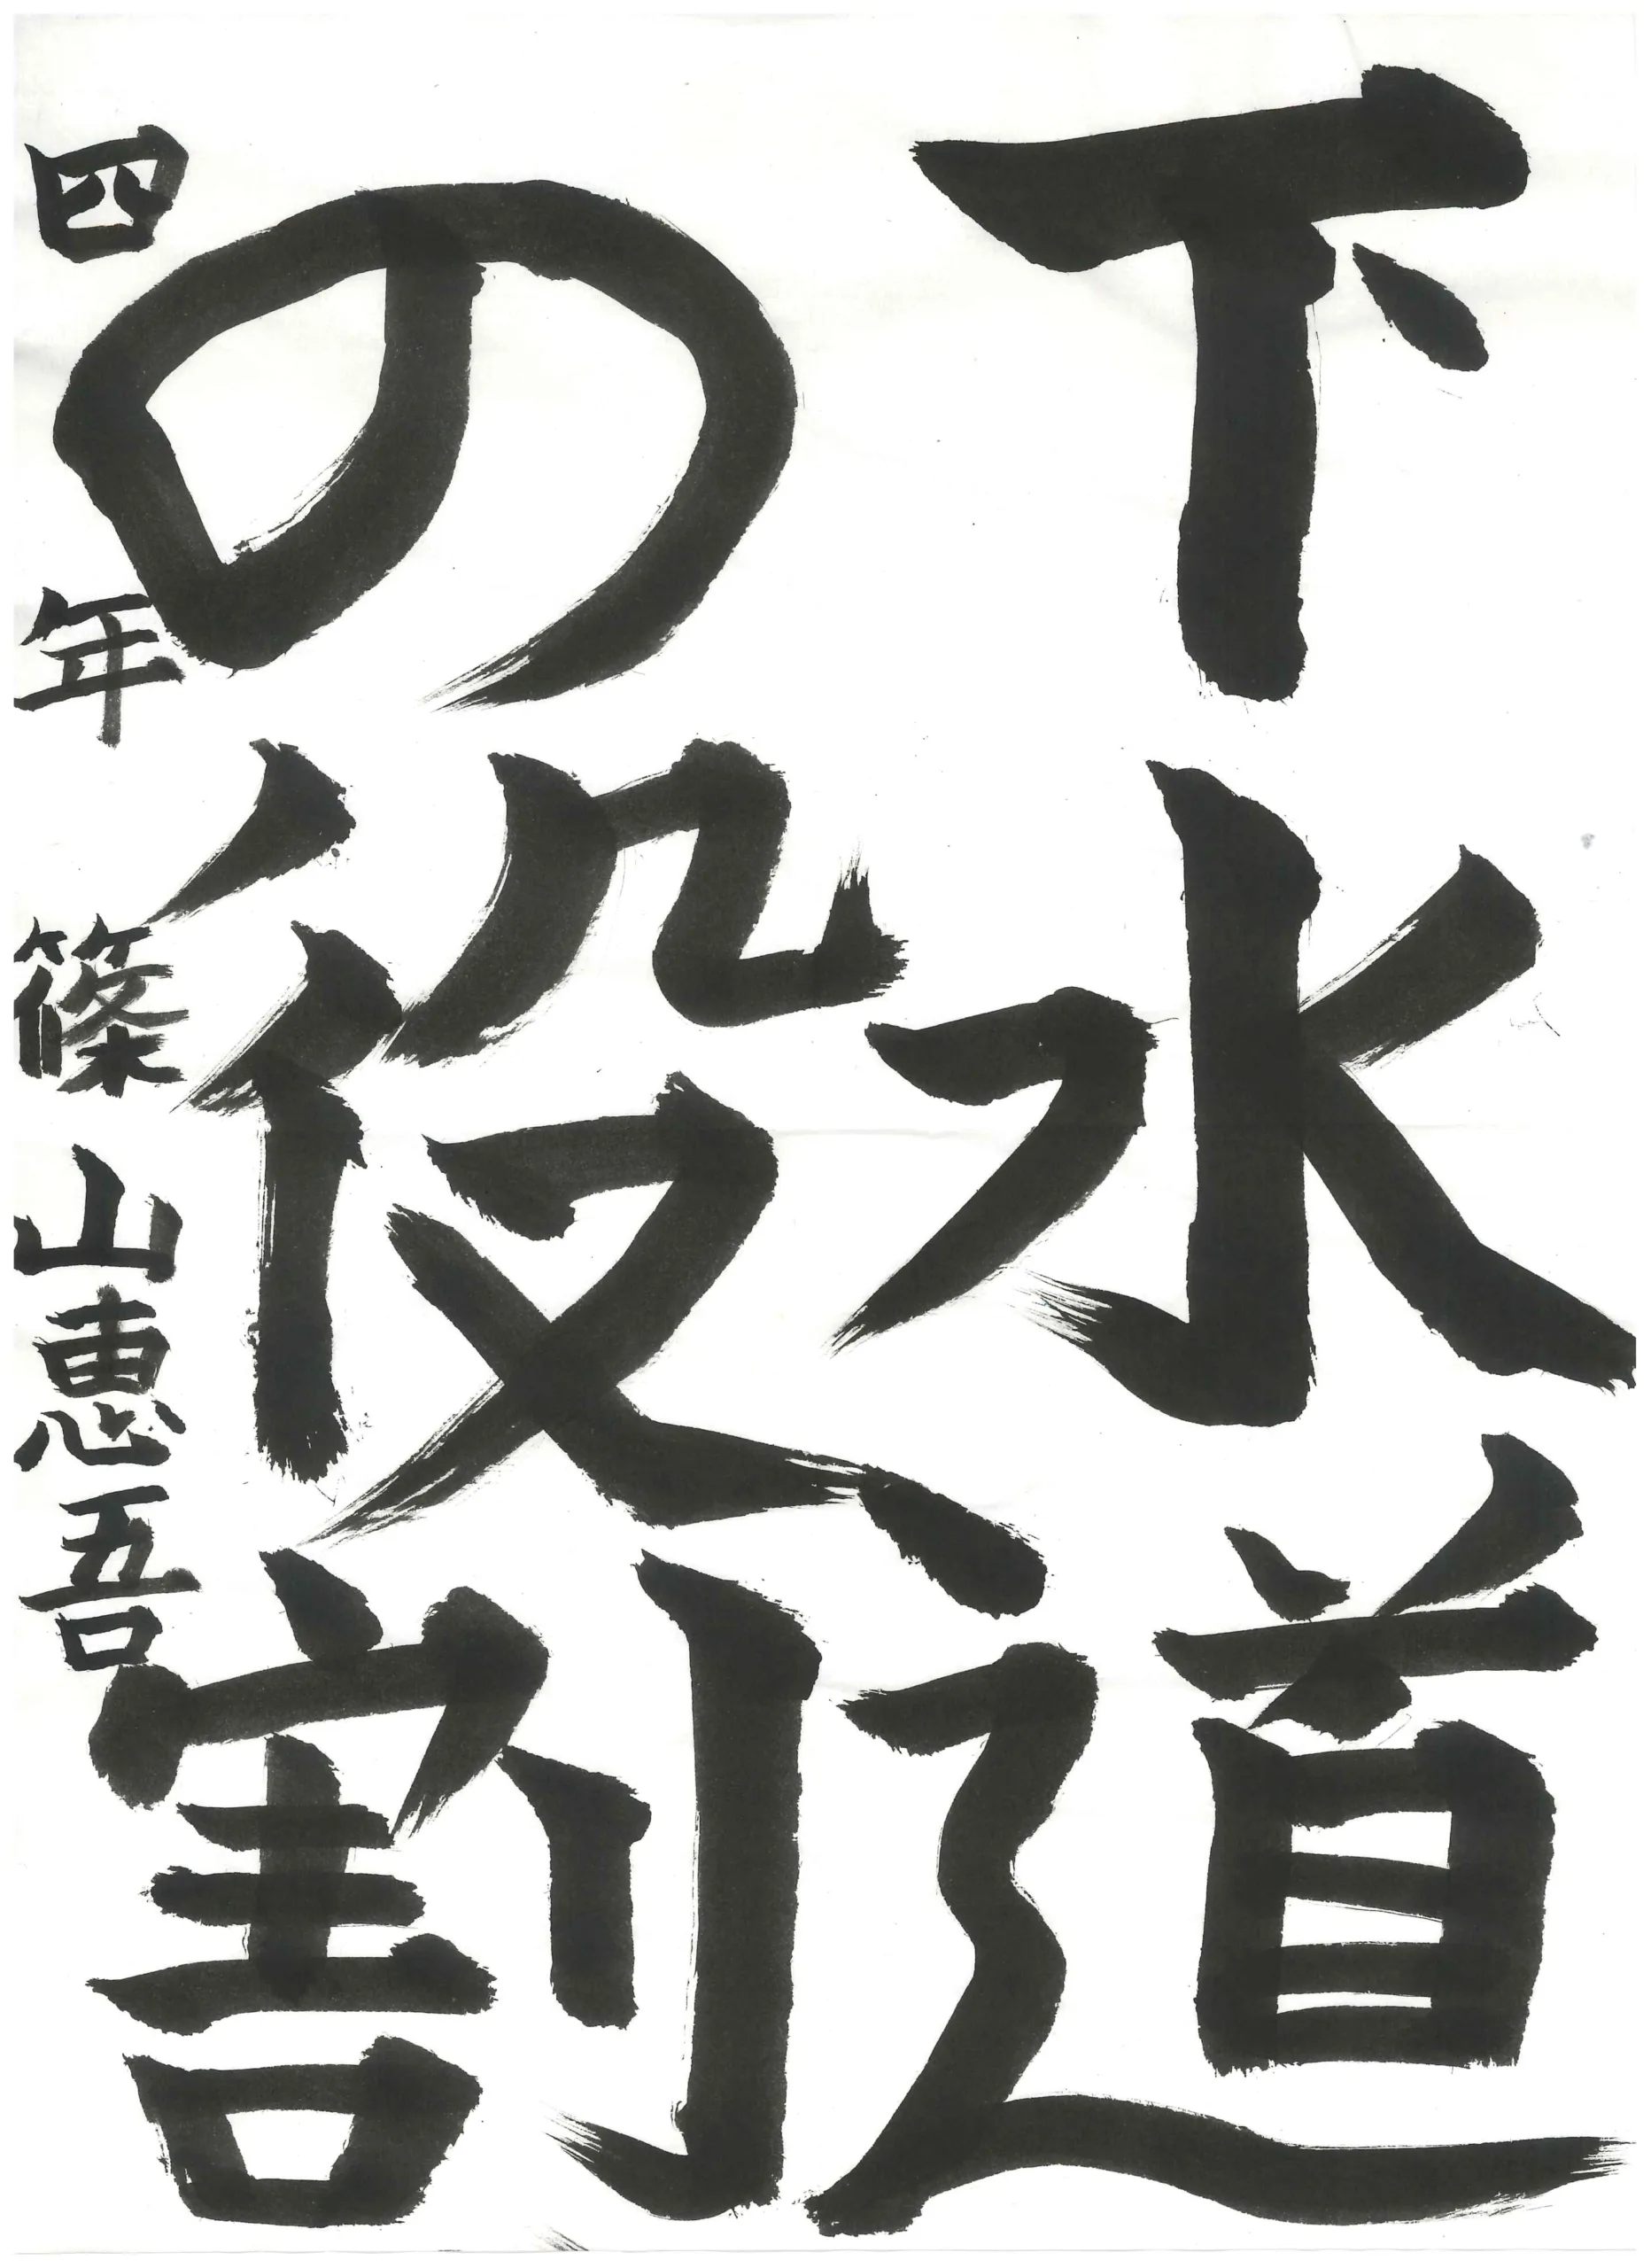 下水道
の役割
四年 篠山恵吾